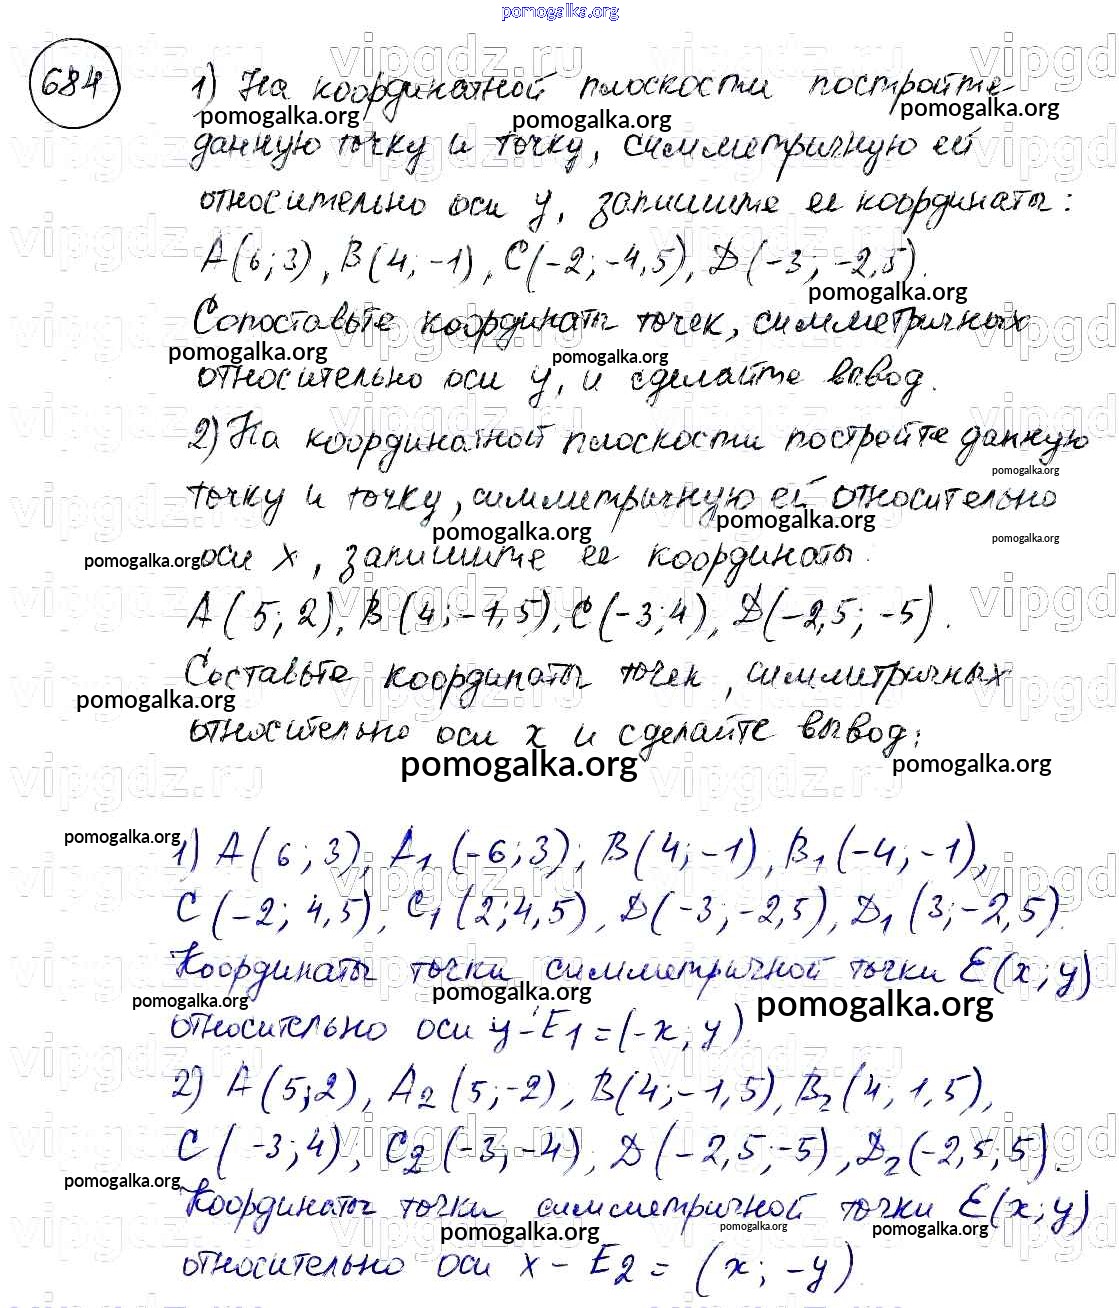 pomogalka.org
684
1) На координатной плоскости постройте
данную точку и точку, симметричную ей
относительно оси y, запишите ее координаты:
A(6; 3), B(4; -1), C(-2; -4,5), D(-3; -2,5).
Сопоставьте координаты точек, симметричных
относительно оси y, и сделайте вывод.
2) На координатной плоскости постройте данную
точку и точку, симметричную ей относительно
оси x, запишите ее координаты:
A(5; 2), B(4; -1,5), C(-3; 4), D(-2,5; -5).
Составьте координаты точек, симметричных
относительно оси x и сделайте вывод:
1) A(6; 3), A1(-6; 3), B(4; -1), B1(-4; -1),
C(-2; 4,5), C1(2; 4,5), D(-3; -2,5), D1(3; -2,5).
Координаты точки симметричной точки E(x; y)
относительно оси y - E1 = (-x; y)
2) A(5; 2), A2(5; -2), B(4; -1,5), B2(4; 1,5),
C(-3; 4), C2(-3; -4), D(-2,5; -5), D2(-2,5; 5).
Координаты точки симметричной точки E(x; y)
относительно оси x - E2 = (x; -y)